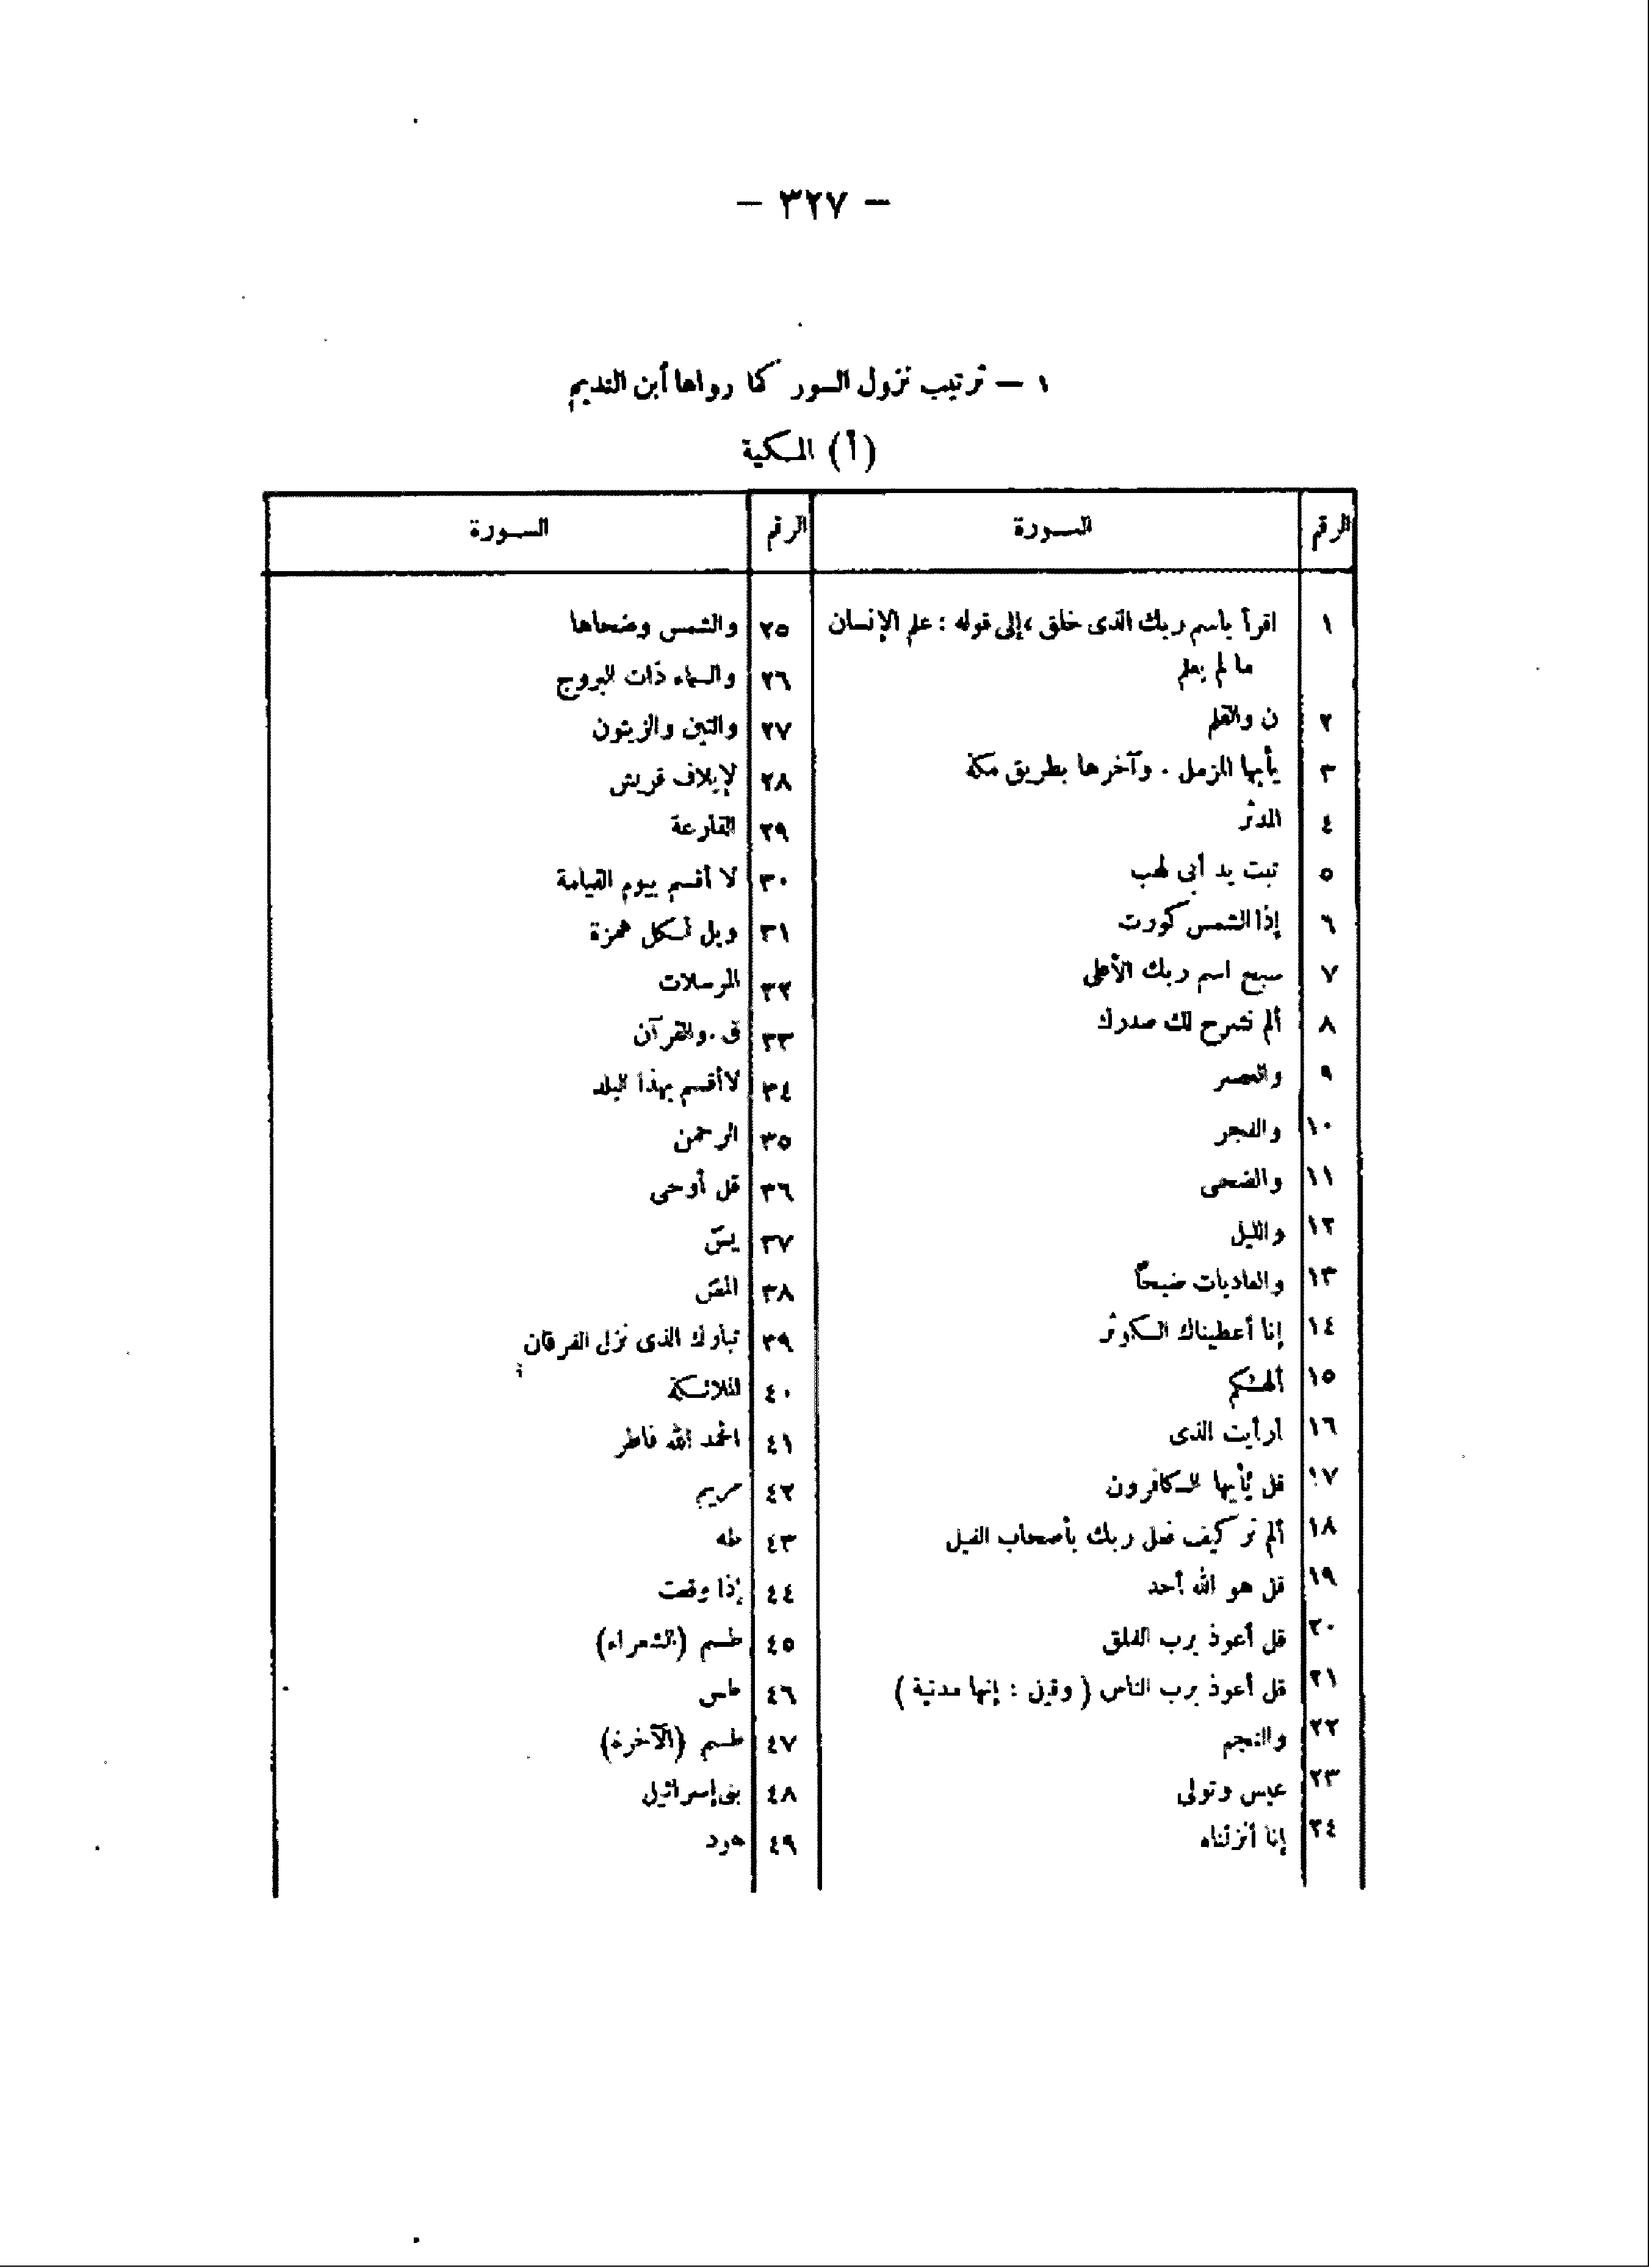 – ٣٢٧ –
١ – ترتيب نزول السور كما رواها أبن النديم
(أ) المكية
الرقم السورة الرقم السورة
١ اقرأ باسم ربك الذى خلق ،إلى قوله : علم الإنسان
ما لم يعلم
٢ ن والقلم
٣ يأيها المزمل . وآخرها بطريق مكة
٤ المدثر
٥ تبت يد أبى لهب
٦ إذا الشمس كورت
٧ سبح اسم ربك الأعلى
٨ ألم نشرح لك صدرك
٩ والعصر
١٠ والفجر
١١ والضحى
١٢ والليل
١٣ والعاديات ضبحاً
١٤ إنا أعطيناك الكوثر
١٥ ألهٰكم
١٦ أرأيت الذى
١٧ قل يٰأيها الكافرون
١٨ ألم تر كيف فعل ربك بأصحاب الفيل
١٩ قل هو الله أحد
٢٠ قل أعوذ برب الفلق
٢١ قل أعوذ برب الناس ( وقيل : إنها مدنية )
٢٢ والنجم
٢٣ عبس وتولى
٢٤ إنا أنزلناه
٢٥ والشمس وضحاها
٢٦ والسماء ذات البروج
٢٧ والتين والزيتون
٢٨ لإيلاف قريش
٢٩ القارعة
٣٠ لا أقسم بيوم القيامة
٣١ ويل لكل همزة
٣٢ المرسلات
٣٣ ق .والقرآن
٣٤ لاأقسم بهذا البلد
٣٥ الرحمن
٣٦ قل أوحى
٣٧ يسٓ
٣٨ المٓصٓ
٣٩ تبارك الذى نزل الفرقان
٤٠ الملائكة
٤١ الحمد الله فاطر
٤٢ مريم
٤٣ طه
٤٤ إذا وقعت
٤٥ طسم (الشعراء)
٤٦ طس
٤٧ طسم (الآخرة)
٤٨ بنى إسرائيل
٤٩ هود